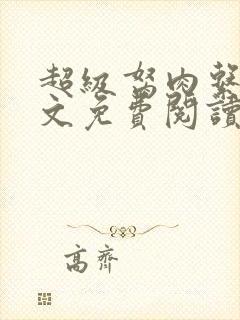 超級弩肉聲
文免費閱讀
高齊